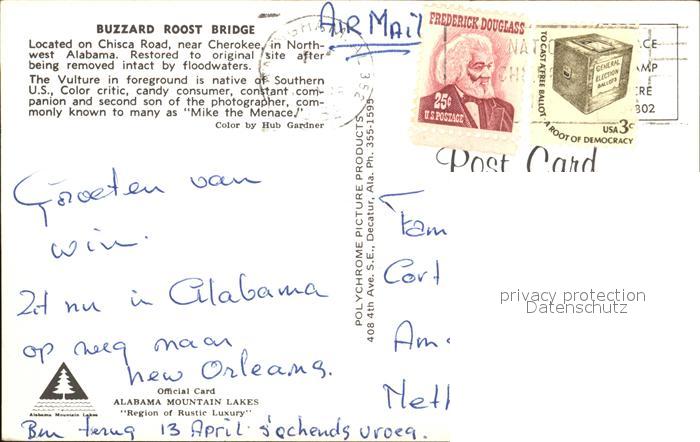 BUZZARD ROOST BRIDGE
Located on Chisca Road, near Cherokee, in North-
west Alabama. Restored to original site after
being removed intact by floodwaters.
The Vulture in foreground is native of Southern
U.S., Color critic, candy consumer, constant com-
panion and second son of the photographer, com-
monly known to many as "Mike the Menace."
Color by Hub Gardner
AIR MAIL
FREDERICK DOUGLASS
25¢
U.S. POSTAGE
TO CAST A FREE BALLOT
GENERAL
ELECTION
BALLOTS
USA 3c
A ROOT OF DEMOCRACY
352
NA
CE
CH
AMP
CRE
802
Post Card
POLYCHROME PICTURE PRODUCTS
408 4th Ave. S.E., Decatur, Ala. Ph. 355-1599
Groeten van
Wim.
Zit nu in Alabama
op weg naar
New Orleans.
Ben terug 13 April 's ochends vroeg.
Fam
Cort
Am.
Neth
privacy protection
Datenschutz
Alabama Mountain Lakes
Official Card
ALABAMA MOUNTAIN LAKES
"Region of Rustic Luxury"